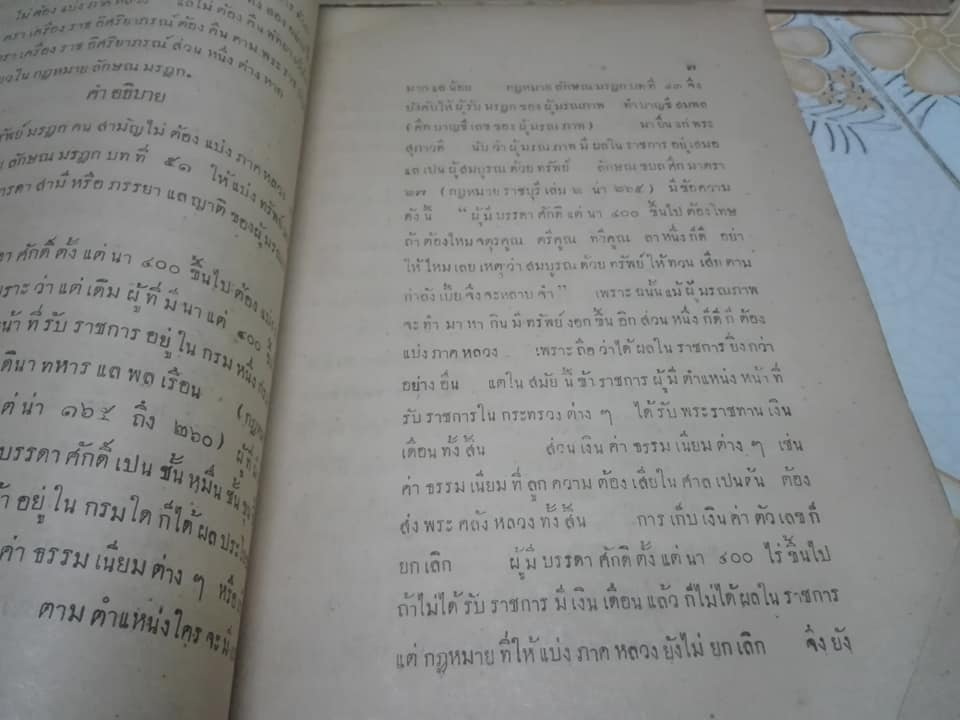 ไม่ต้อง แบ่ง ภาค หลวง
ตรา เครื่อง ราช อิศริยาภรณ์ ต้อง คืน ตาม พระ ราช
ตรา เครื่อง ราช อิศริยาภรณ์ ส่วน หนึ่ง ต่าง หาก
ใน กฎหมาย ลักษณ มรฎก.
คำ อธิบาย
ทรัพย์ มรฎก คน สามัญ ไม่ ต้อง แบ่ง ภาค หลวง
ลักษณ มรฎก บท ที่ ๕๑ ให้ แบ่ง ทรัพย์
สามี หรือ ภรรยา แล ญาติ ของ ผู้
ศักดิ์ ตั้ง แต่ นา ๔๐๐ ขึ้น ไป ต้อง แบ่ง
เพราะ ว่า แต่ เดิม ผู้ ที่ มี นา แต่ ๔๐๐
หน้า ที่ รับ ราชการ อยู่ ใน กรม หนึ่ง
ทหาร แล พลเรือน
น่า ๑๖๕ ถึง ๒๖๐)
บรรดา ศักดิ์ เปน ชั้น หมื่น ชั้น
อยู่ ใน กรม ใด ก็ ได้ ผล
ค่า ธรรม เนียม ต่าง ๆ หรือ
ตาม ตำแหน่ง ใคร จะ มี
๓
มาก แล น้อย กฎหมาย ลักษณ มรฎก บท ที่ ๔๓ จึ่ง
บังคับ ให้ ผู้ รับ มรฎก ของ ผู้ มรณภาพ ทำ บาญชี สมพล
(คือ บาญชี เลข ของ ผู้ มรณ ภาพ) มา ยื่น แก่ พระ
สุภาวดี นับ ว่า ผู้ มรณ ภาพ มี ผล ใน ราชการ อยู่ เสมอ
แล เปน ผู้ สมบูรณ ด้วย ทรัพย์ ลักษณ ขบถ ศึก มาตรา
๒๗ (กฎหมาย ราชบุรี เล่ม ๒ น่า ๒๖๕) มี ข้อ ความ
ดัง นี้ "ผู้ มี บรรดา ศักดิ แต่ นา ๔๐๐ ขึ้น ไป ต้อง โทษ
ถ้า ต้อง ไหม จตุรคูณ ตรีคูณ ทวีคูณ ลา หนึ่ง ก็ดี อย่า
ให้ ไหม เลย เหตุ ว่า สมบูรณ ด้วย ทรัพย์ ให้ ทวน เสีย ตาม
กำลัง เบี้ย จึ่ง จะ หลาบ จำ" เพราะ ฉนั้น แม้ ผู้ มรณภาพ
จะ ทำ มา หา กิน มี ทรัพย์ งอก ขึ้น อีก ส่วน หนึ่ง ก็ดี ก็ ต้อง
แบ่ง ภาค หลวง เพราะ ถือ ว่า ได้ ผล ใน ราชการ ยิ่ง กว่า
อย่าง อื่น แต่ ใน สมัย นี้ ข้า ราชการ ผู้ มี ตำแหน่ง หน้า ที่
รับ ราชการ ใน กระทรวง ต่าง ๆ ได้ รับ พระราชทาน เงิน
เดือน ทั้ง สิ้น ส่วน เงิน ค่า ธรรม เนียม ต่าง ๆ เช่น
ค่า ธรรม เนียม ที่ ลูก ความ ต้อง เสีย ใน ศาล เปนต้น ต้อง
ส่ง พระ คลัง หลวง ทั้ง สิ้น การ เก็บ เงิน ค่า ตัว เลข ก็
ยก เลิก ผู้ มี บรรดา ศักดิ ตั้ง แต่ นา ๔๐๐ ไร่ ขึ้น ไป
ถ้า ไม่ ได้ รับ ราชการ มี เงิน เดือน แล้ว ก็ ไม่ ได้ ผล ใน ราชการ
แต่ กฎหมาย ที่ ให้ แบ่ง ภาค หลวง ยัง ไม่ ยก เลิก จึ่ง ยัง